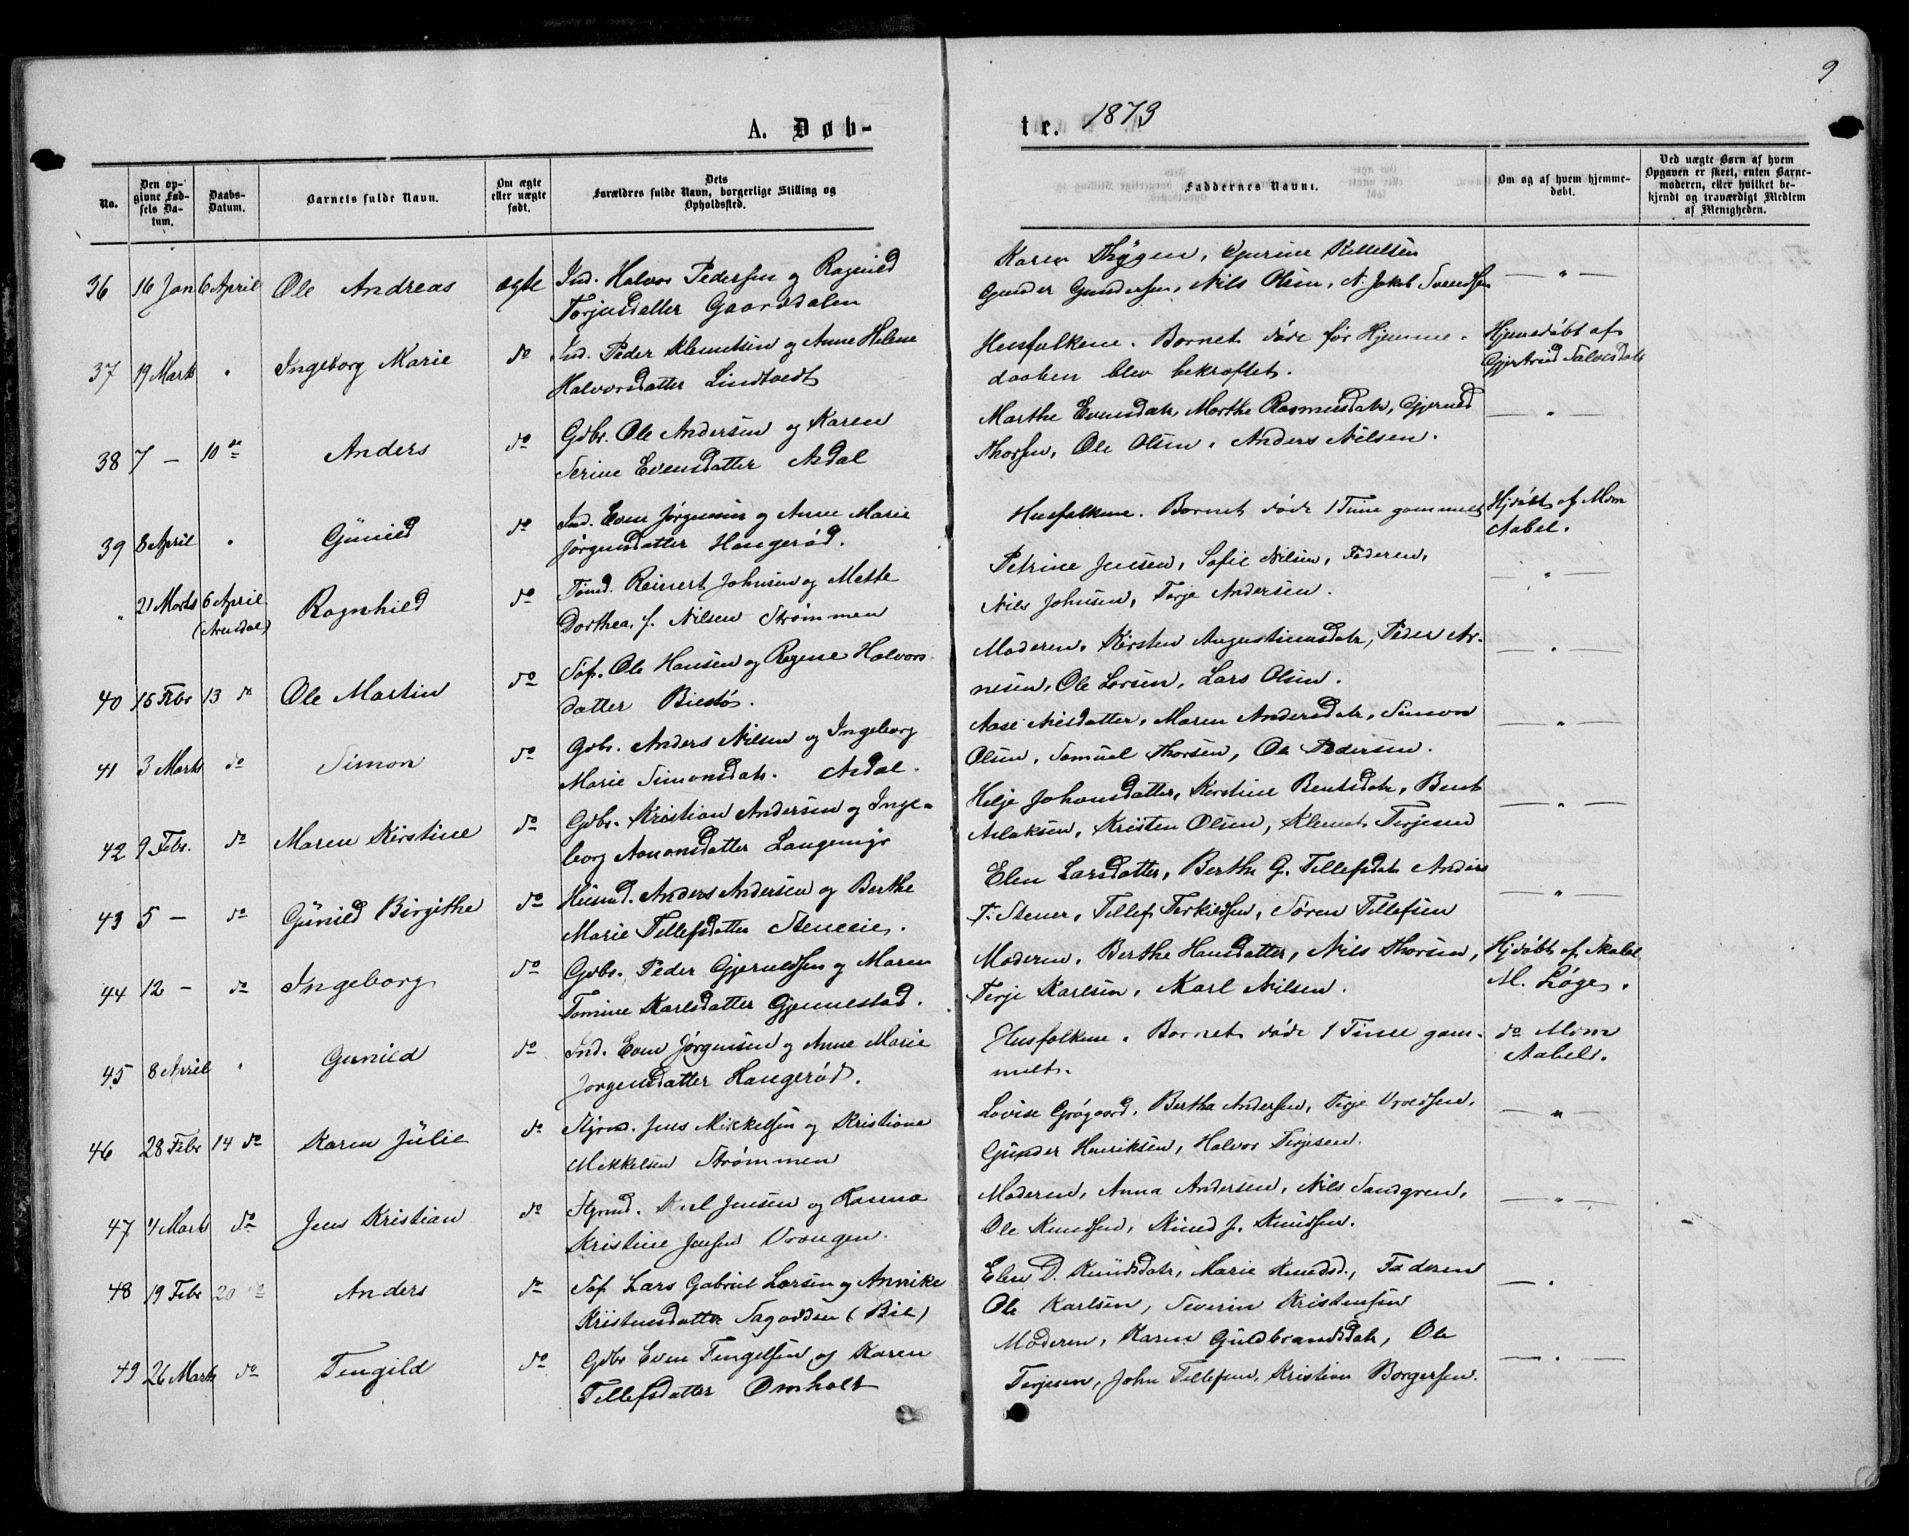 9
A. Døb-
te. 1873
No.
Den op-
givne Fød-
sels Da-
tum.
Daabs-
Datum.
Barnets fulde Navn.
Om ægte
eller uægte
født.
Dets
Forældres fulde Navn, borgerlige Stilling og
Opholdssted.
Faddernes Navne.
Om og af hvem hjemme-
døbt.
Ved uægte Børn af hvem
Opgaven er skeet, enten Barne-
moderen, eller hvilket be-
kjendt og troværdigt Medlem
af Menigheden.
36 16 Jan 6 April Ole Andreas ægte Ind. Halvor Pedersen og Ragnild
Torjusdatter Gaardsdalen
Karen Thygen, Gurine Kittelsen
Gunder Gundersen, Nils Olsen, N. Jakob Svendsen
— " —
37 19 Marts " Ingeborg Marie do Ind. Peder Klemetsen og Anne Helene
Halvorsdatter Lindtvedt
Husfolkene. Barnet døde før Hjemme-
daaben blev bekræftet.
Hjemedøbt af
Gjertrud Salvesdatr
38 7 — 10 do Anders do Gdbr. Ole Andersen og Karen
Serine Evensdatter Asdal
Marthe Evensdatr, Marthe Rasmusdatr, Gjeruld
Thorsen, Ole Olsen, Anders Nilsen.
— " —
39 8 April " Gunild do Ind. Even Jørgensen og Anne Marie
Jørgensdatter Haugerød.
Husfolkene. Barnet døde 1 Time gammelt
Hjdøbt af Mdm
Aabel.
" 21 Marts 6 April Ragnhild do Tømd. Reinert Johnsen og Mette
(Arendal)
Dorthea, f. Nilsen Strømmen
Petrine Jensen, Sofie Nilsen, Faderen,
Nils Johnsen, Terje Andersen.
— " —
40 15 Febr 13 do Ole Martin do Søf. Ole Hansen og Regine Halvors-
datter Biestø.
Moderen, Kirsten Augustinusdatr, Peder Ar-
nesen, Ole Larsen, Lars Olsen.
— " —
41 3 Marts do Simon do Gdbr. Anders Nilsen og Ingeborg
Marie Simonsdatr. Asdal.
Aase Nilsdatter, Maren Andersdatr, Simon
Olsen, Samuel Thorsen, Ole Pedersen.
— " —
42 9 Febr. do Maren Kirstine do Gdbr. Kristian Andersen og Inge-
borg Aanonsdatter Langemyr
Helje Johansdatter, Kirstine Bentsdatr, Bent
Aslaksen, Kristen Olsen, Klemet Terjesen
— " —
43 5 — do Gunild Birgithe do Husmd. Anders Andersen og Berthe
Marie Tellefsdatter Steneie.
Elen Larsdatter, Berthe G. Tellefsdatr Anders
T. Stener, Tellef Terkildsen, Søren Tellefsen
— " —
44 12 — do Ingeborg do Gdbr. Peder Gjeruldsen og Maren
Tomine Karlsdatter Gjennestad.
Moderen, Berthe Hansdatter, Nils Thorsen,
Terje Karlsen, Karl Nilsen.
Hjdøbt af
M. Løge.
45 8 April " Gunild do Ind. Even Jørgensen og Anne Marie
Jørgensdatter Haugerød.
Husfolkene. Barnet døde 1 Time gam-
melt.
do Mdm
Aabel.
46 28 Febr 14 do Karen Julie do Styrmd. Jens Mikkelsen og Kristiane
Mikkelsen Strømmen
Lovise Grøgaard, Bertha Andersen, Terje
Gunder Henriksen, Halvor Terjesen.
— " —
47 4 Marts do Jens Kristian do Styrmd. Karl Jensen og Hanna
Kristine Jensen Vrængen.
Moderen, Anna Andersen, Nils Sandgren,
Ole Knudsen, Knud J. Knudsen.
— " —
48 19 Febr 20 do Anders do Søf. Lars Gabriel Larsen og Annike
Kristensdatter Sagodden (Bie)
Elen D. Knudsdatr, Marie Knudsd., Faderen
Ole Karlsen, Severin Kristensen
— " —
49 26 Marts do Tengild do Gdbr Even Tengelsen og Karen
Tellefsdatter Omholt
Moderen, Karen Guldbrandsdatr, Ole
Terjesen, John Tellefsen, Kristian Borgersen.
— " —